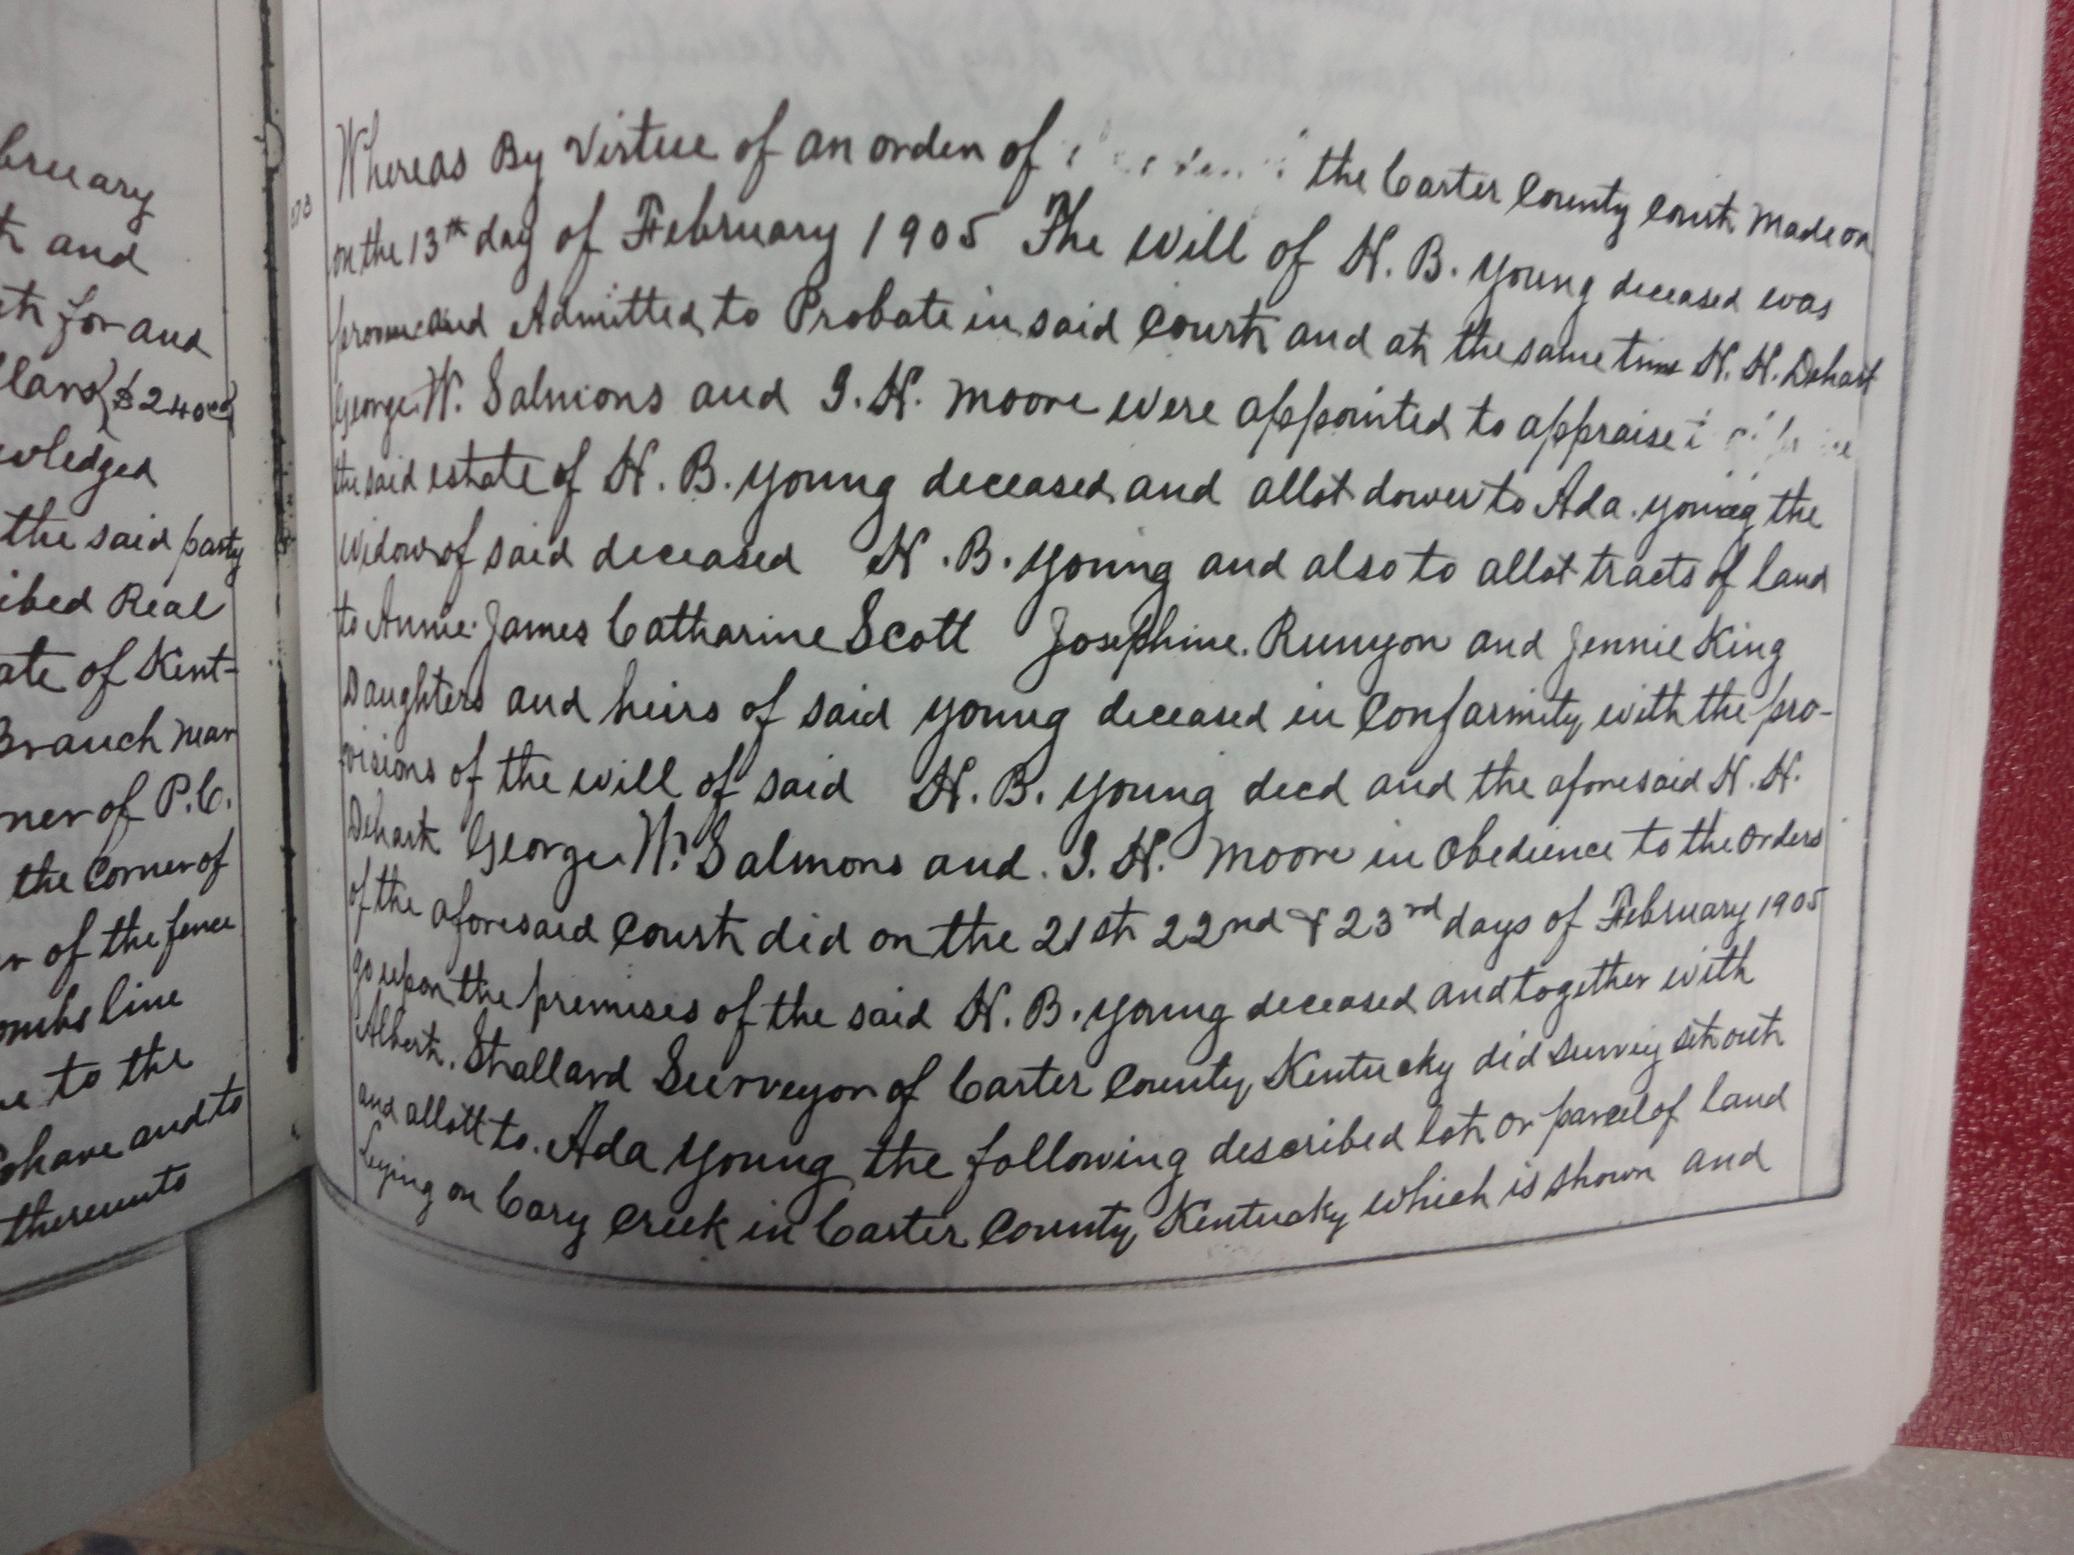 bruary
and
for and
lars $240.00
wledged
the said party
ibed Real
ate of Kent-
Branch near
ner of P.C.
the Corner of
of the fence
line
to the
have and to
thereunto
Whereas By Virtue of an order of the Carter County Court Made on
on the 13th day of February 1905 The Will of H. B. Young deceased was
and Admitted to Probate in said Court and at the same time H. H. Dehart
George W. Salmons and I. H. Moore were appointed to appraise
the said estate of H. B. Young deceased and allot dower to Ada Young the
Widow of said deceased H. B. Young and also to allot tracts of land
to Annie James Catharine Scott Josephine Runyon and Jennie King
Daughters and heirs of said Young deceased in Conformity with the pro-
visions of the will of said H. B. Young decd and the aforesaid H. H.
Dehart George W. Salmons and I. H. Moore in Obedience to the Orders
of the aforesaid Court did on the 21st 22nd & 23rd days of February 1905
go upon the premises of the said H. B. Young deceased and together with
Albert Stallard Surveyor of Carter County Kentucky did survey set out
and allott to Ada Young the following described lot or parcel of land
Lying on Cary Creek in Carter County Kentucky which is shown and